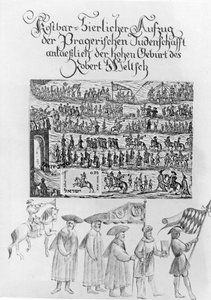 Kostbar-Zierlicher Aufzug
der Pragerischen Judenschafft
anlaeßlich der hohen Geburt des
Robert Weltsch